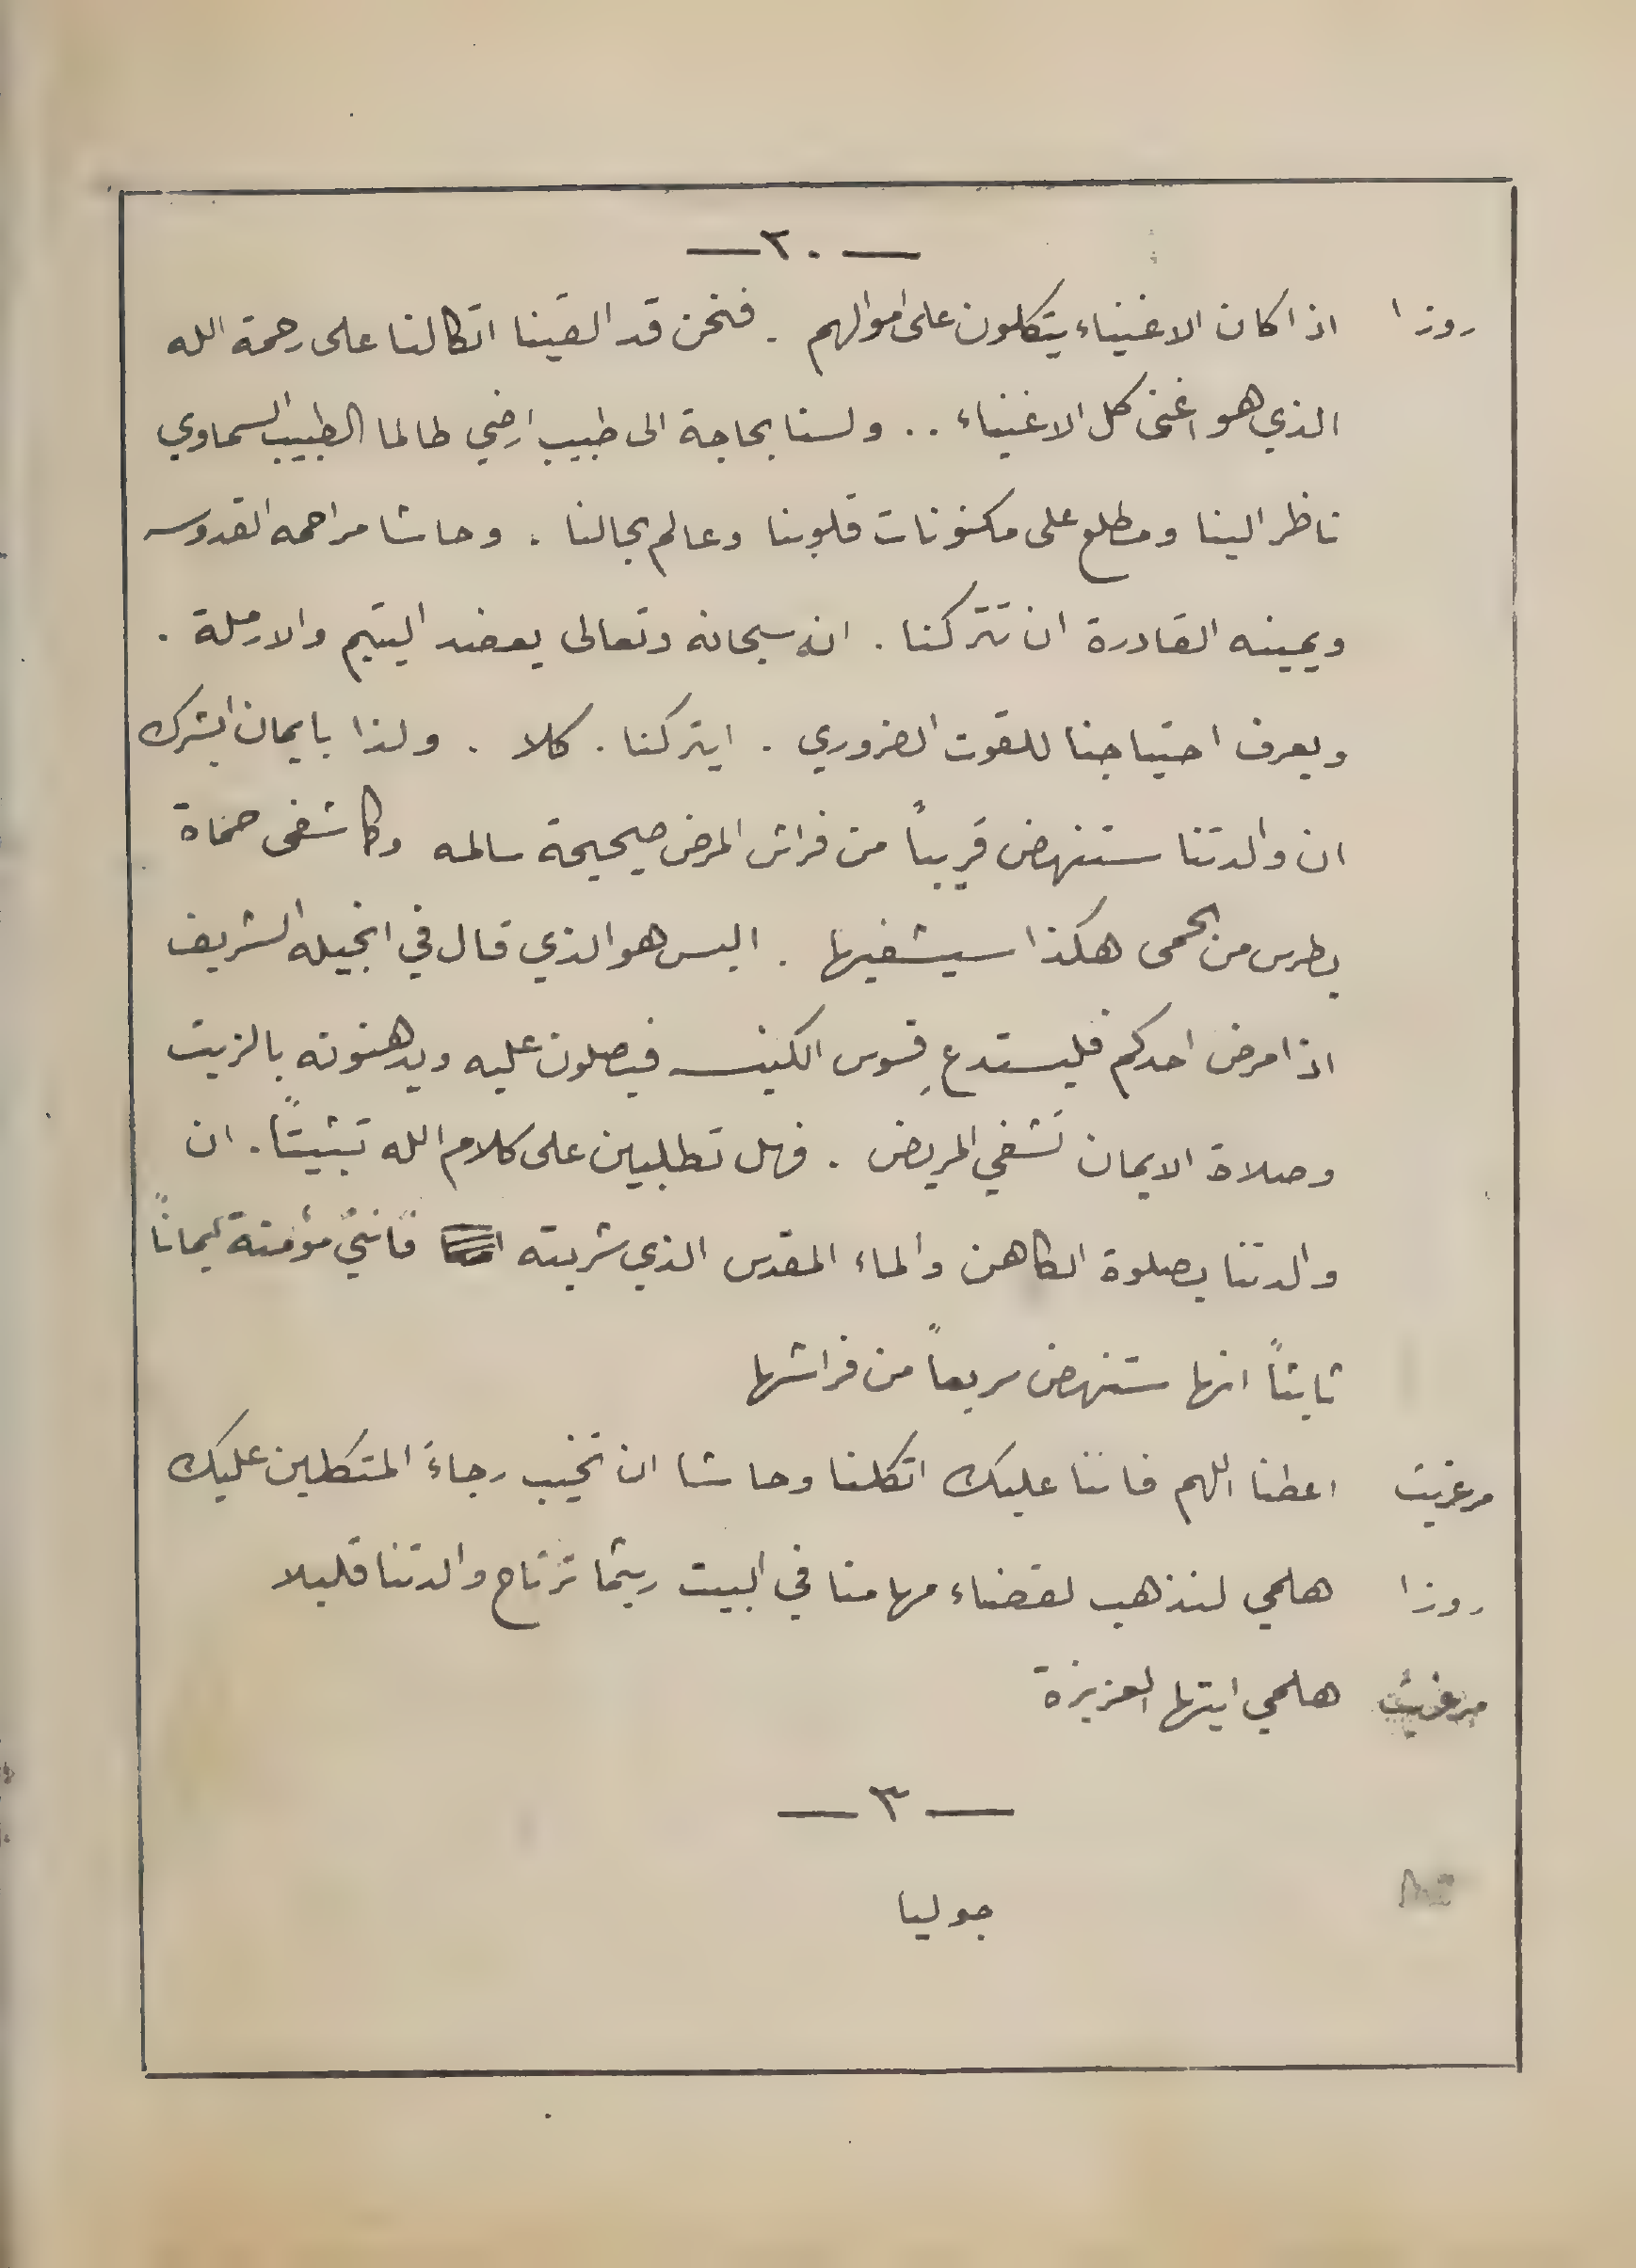 — ٢٠ —
روزا اذا كان الاغنياء يتكلون على اموالهم . فنحن قد القينا اتكالنا على رحمة الله
الذي هو اغنى كل الاغنياء .. ولسنا بحاجة الى طبيب ارضي طالما الطبيب السماوي
ناظر الينا ومطلع على مكنونات قلوبنا وعالم بحالنا . وحاشا مراحمه القدوسه
ويمينه القادرة ان تتركنا . انه سبحانه وتعالى يعضد اليتيم والارملة .
ويعرف احتياجنا للقوت الضروري . ايتركنا . كلا . ولذا بايمان ابشرك
ان والدتنا ستنهض قريباً من فراش المرض صحيحة سالمه وكما شفى حماة
بطرس من الحمى هكذا سيشفيها . اليس هو الذي قال في انجيله الشريف
اذا مرض احدكم فليستدعِ قسوس الكنيسه فيصلون عليه ويدهنونه بالزيت
وصلاة الايمان تَشفي المريض . فهل تطلبين على كلام الله تثبيتاً . ان
والدتنا بصلوة الكاهن والماء المقدس الذي شربته فانني مؤمنة ايماناً
ثابتاً انها ستنهض سريعاً من فراشها
مرغريت اعطنا اللهم فاننا عليك اتكلنا وحاشا ان تخيب رجاءَ المتكلين عليك
روزا هلمي لنذهب لقضاء مهامنا في البيت ريثما ترتاح والدتنا قليلا
مرغريت هلمي ايتها العزيزة
— ٣ —
جوليا